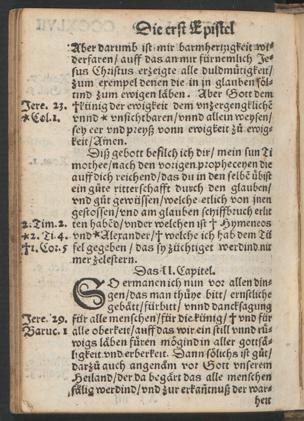 Die erst Epistel
Aber darumb ist mir barmhertzigkeit wi-
derfaren/ auff das an mir fürnemlich Je-
sus Christus erzeigte alle duldmütigkeit/
zum exempel denen die in jn glauben söl-
lind zum ewigen läben. Aber Gott dem
Jere. 23. †künig der ewigkeit dem vnzergengklichē
*Col.1. vnnd * vnsichtbaren/ vnnd allein weysen/
sey eer vnd preyß vonn ewigkeit zů ewig-
keit/ Amen.
Diß gebott befilch ich dir/ mein sun Ti
mothee/ nach den vorigen propheceyen die
auff dich reichend/ das du in den selbē übist
ein gůte ritterschafft durch den glauben/
vnd gůt gewissen/ welche etlich von jnen
gestossen/ vnd am glauben schiffbruch erlit
2. Tim. 2. ten habēd/ vnder welchen ist † Hymeneos
*2. Ti.4. vnd *Alexander/ † welche ich hab dem Tü
†1. Cor. 5 fel gegeben/ das sy züchtiget werdind nit
mer ze lestern.
Das II. Capitel.
SO ermanen ich nun vor allen din-
gen/ das man thüye bitt/ ernstliche
gebätt/ fürbitt/ vnnd dancksagung
Jere. 29. für alle menschen/ für die künig/ † vnd für
Baruc. 1 alle oberkeit/ auff das wir ein still vnnd rů-
wigs läben füren mögind in aller gottsä-
ligkeit vnd erberkeit. Dann sölichs ist gůt/
darzů auch angenäm vor Gott vnserem
Heiland/ der da begärt das alle menschen
sälig werdind/ vnd zur erkantnuß der war-
heit